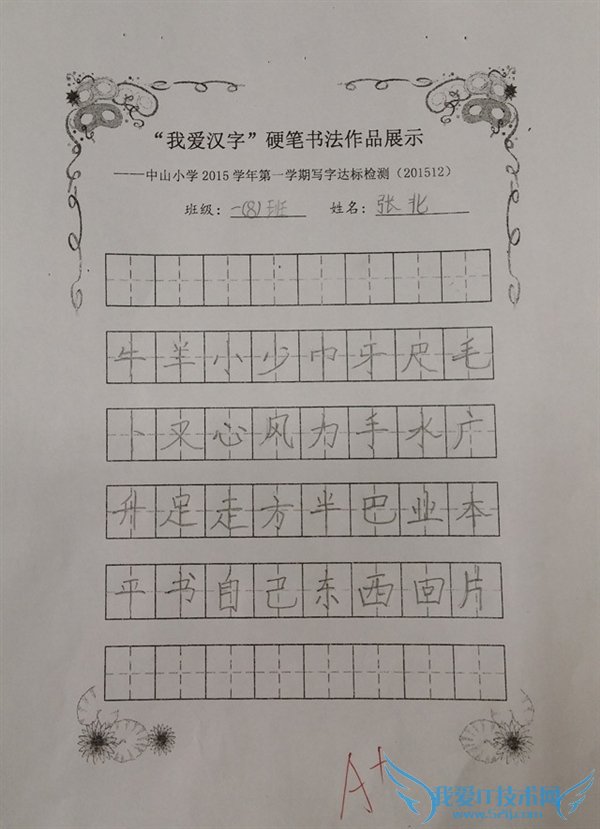 “我爱汉字”硬笔书法作品展示
——中山小学2015学年第一学期写字达标检测（201512）
班级：一(8)班 姓名：张北
牛羊小少巾牙尺毛
卜又心风为手水广
升足走方半巴业本
平书自己东西回片
A+
我爱IT技术网
www.52ij.com